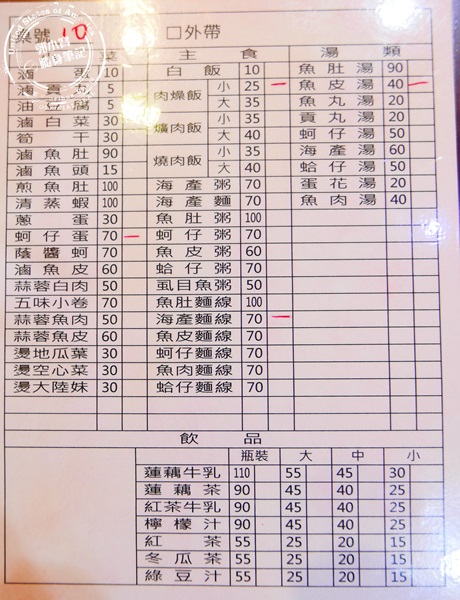 桌號 10 □外帶
菜 主食 湯類
滷蛋 10 白飯 10 魚肚湯 90
滷貢丸 5 肉燥飯 小 25 一 魚皮湯 40 一
油豆腐 5 大 35 魚丸湯 20
滷白菜 30 爌肉飯 小 35 貢丸湯 20
筍干 30 大 40 蚵仔湯 50
滷魚肚 90 燒肉飯 小 35 海產湯 60
滷魚頭 15 大 40 蛤仔湯 50
煎魚肚 100 海產粥 70 蛋花湯 20
清蒸蝦 100 海產麵 70 魚肉湯 40
蔥蛋 30 魚肚粥 100
蚵仔蛋 70 一 蚵仔粥 70
蔭醬蚵 70 魚皮粥 60
滷魚皮 60 蛤仔粥 70
蒜蓉白肉 50 虱目魚粥 50
五味小卷 70 魚肚麵線 100
蒜蓉魚肉 50 海產麵線 70 一
蒜蓉魚皮 60 魚皮麵線 70
燙地瓜葉 30 蚵仔麵線 70
燙空心菜 30 魚肉麵線 70
燙大陸妹 30 蛤仔麵線 70
飲品
瓶裝 大 中 小
蓮藕牛乳 110 55 45 30
蓮藕茶 90 45 40 25
紅茶牛乳 90 45 40 25
檸檬汁 90 45 40 25
紅茶 55 25 20 15
冬瓜茶 55 25 20 15
綠豆汁 55 25 20 15